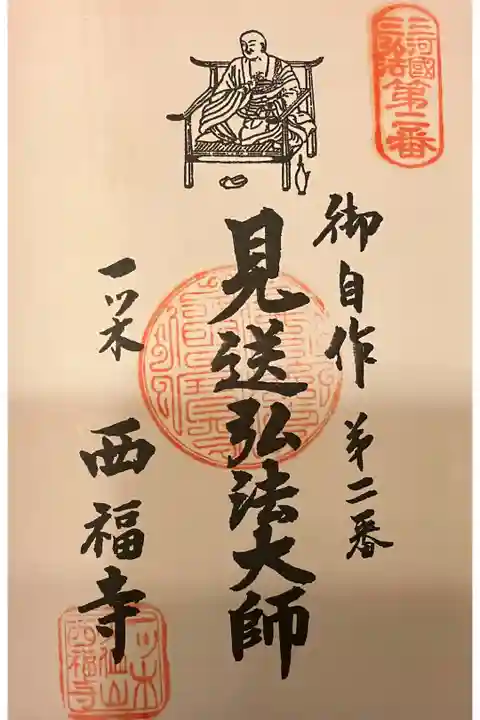 三河國
三弘法
第二番
御自作 第二番
見送弘法大師
一ツ木 西福寺
一ツ木
仙山
西福寺